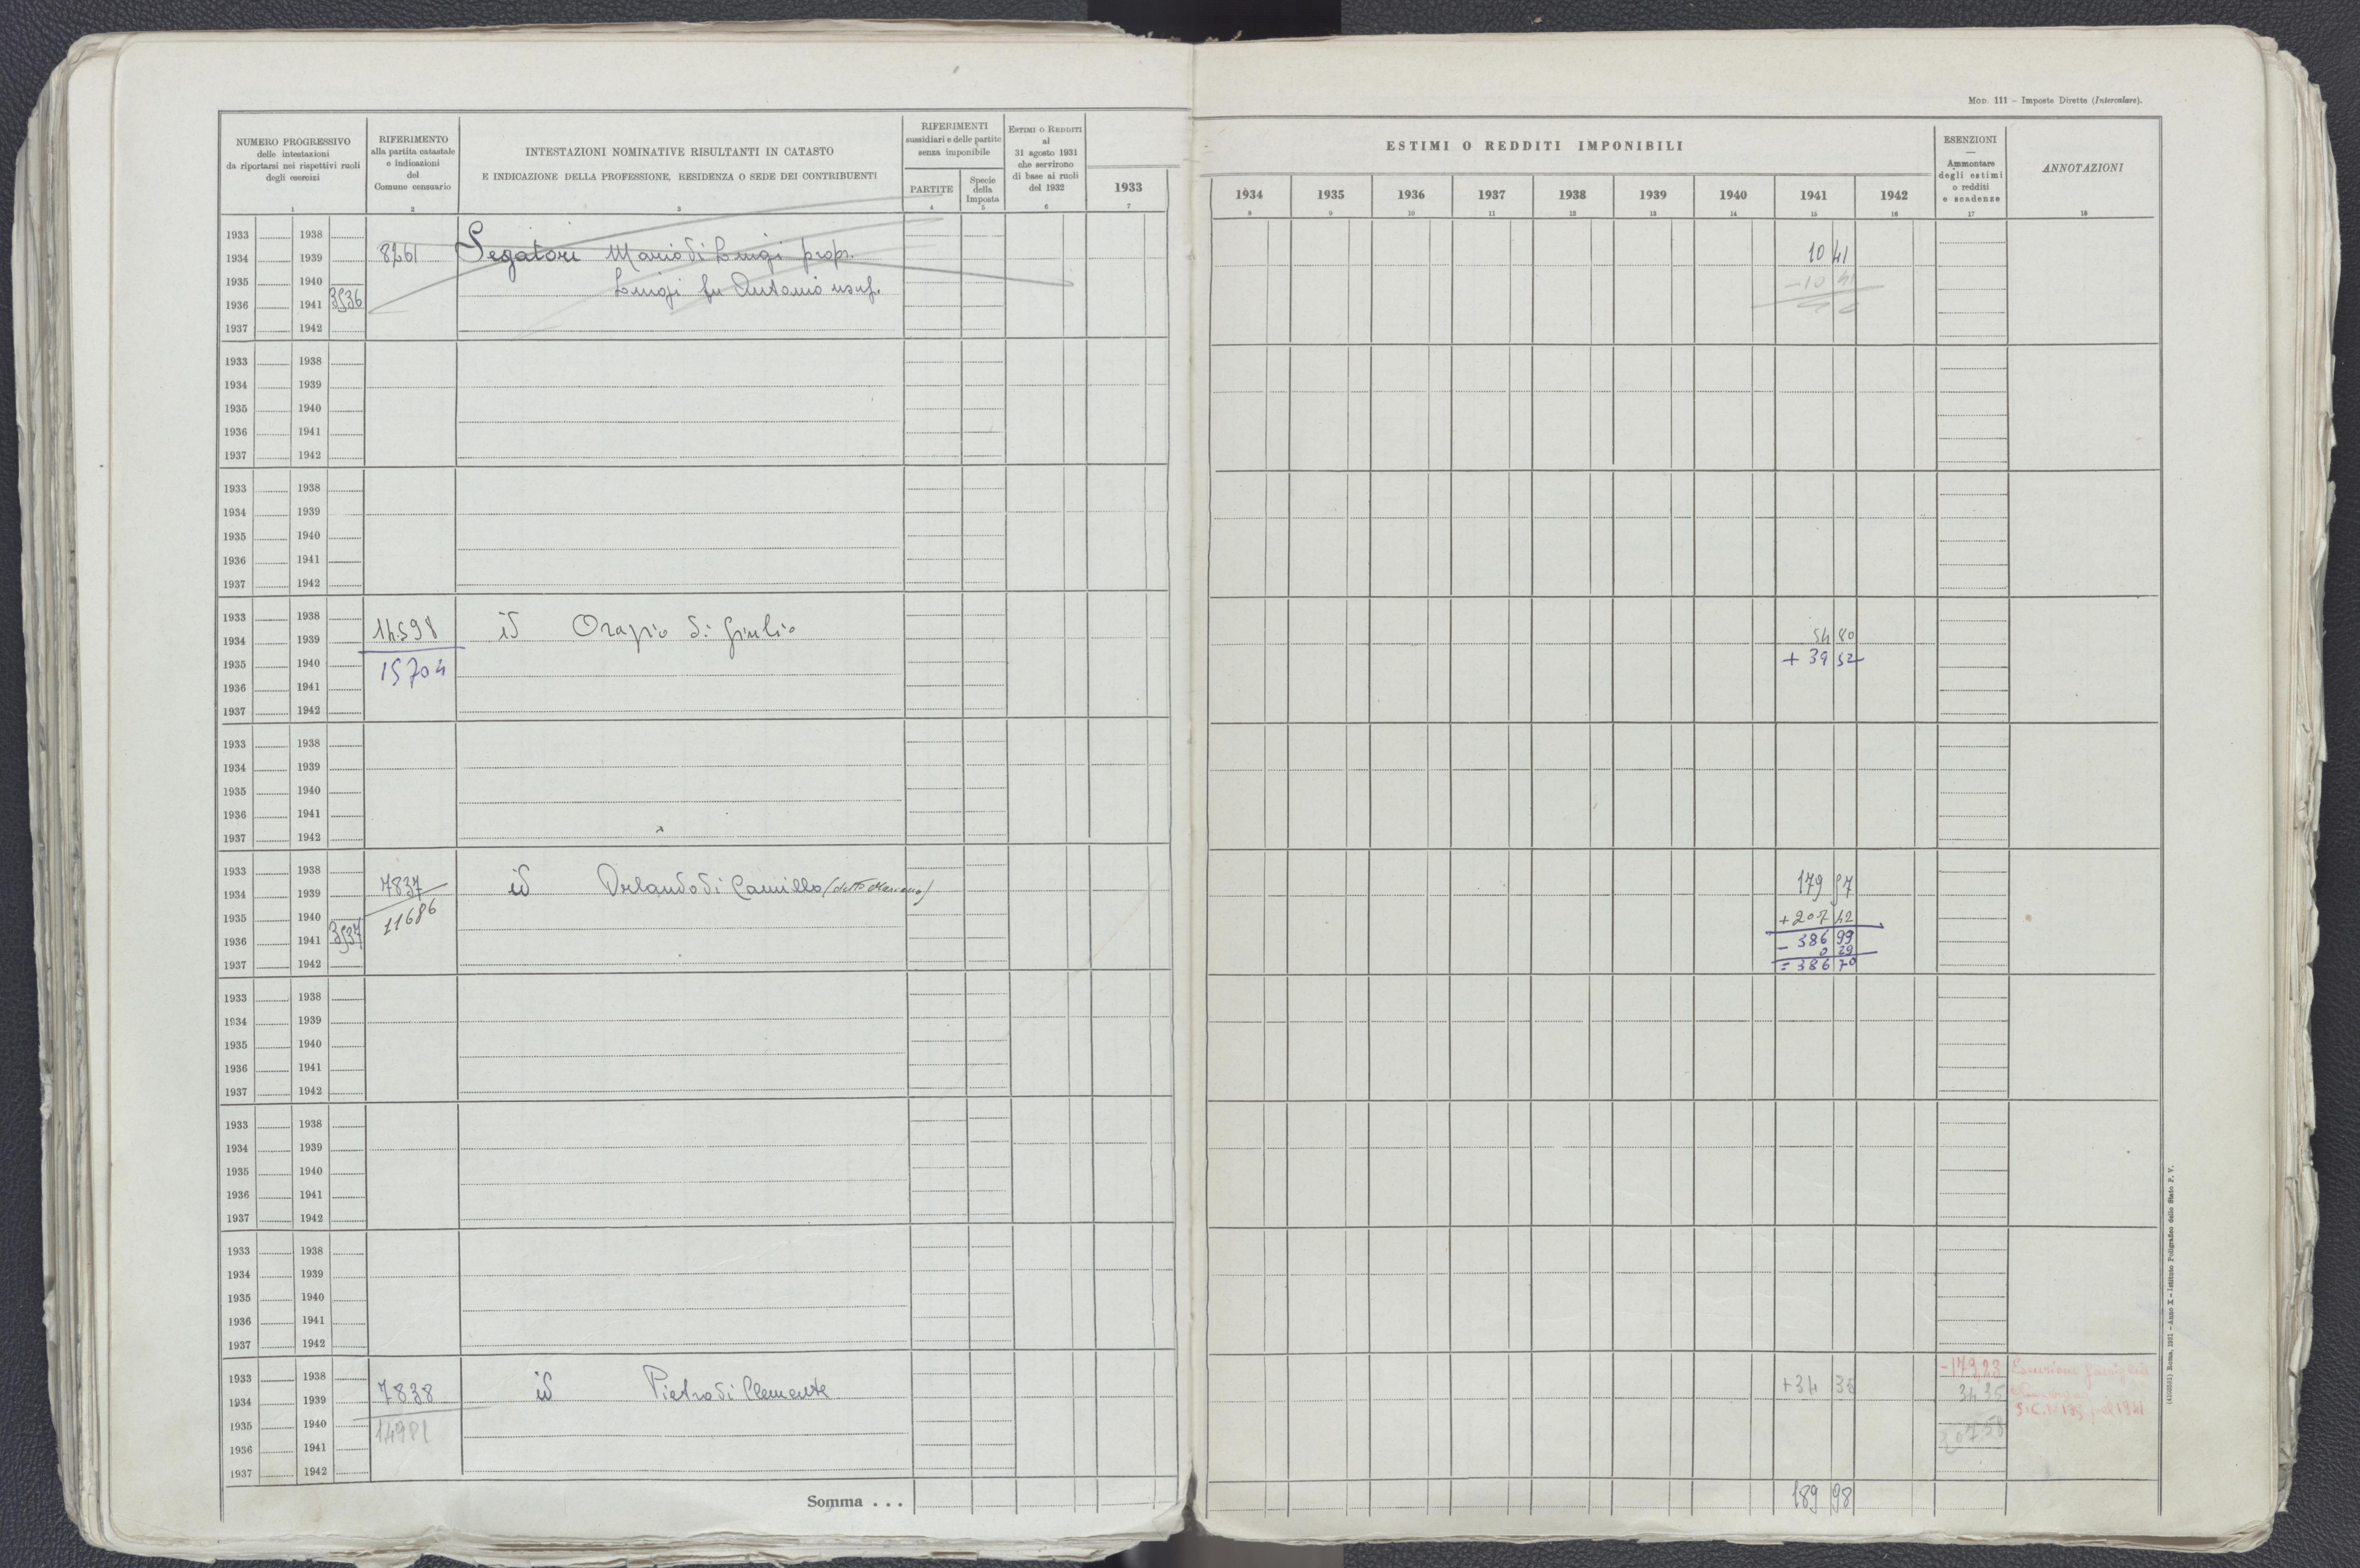 MOD. 111 – Imposte Dirette (Intercalare).
NUMERO PROGRESSIVO
delle intestazioni
da riportarsi nei rispettivi ruoli
degli esercizi
1
RIFERIMENTO
alla partita catastale
e indicazioni
del
Comune censuario
2
INTESTAZIONI NOMINATIVE RISULTANTI IN CATASTO
E INDICAZIONE DELLA PROFESSIONE, RESIDENZA O SEDE DEI CONTRIBUENTI
3
RIFERIMENTI
sussidiari e delle partite
senza imponibile
PARTITE
4
Specie
della
Imposta
5
ESTIMI O REDDITI
al
31 agosto 1931
che servirono
di base ai ruoli
del 1932
6
1933
7
ESTIMI O REDDITI IMPONIBILI
1934 1935 1936 1937 1938 1939 1940 1941 1942
8 9 10 11 12 13 14 15 16
ESENZIONI
—
Ammontare
degli estimi
o redditi
e scadenze
17
ANNOTAZIONI
18
1933 1938
1934 1939 8261 Segatori Mario di Luigi propr. 10 41
1935 1940 Luigi fu Antonio usuf. – 10 41
1936 1941 3536
1937 1942
1933 1938
1934 1939
1935 1940
1936 1941
1937 1942
1933 1938
1934 1939
1935 1940
1936 1941
1937 1942
1933 1938
1934 1939 14598 id Orazio di Giulio 54 80
1935 1940 15704 + 39 52
1936 1941
1937 1942
1933 1938
1934 1939
1935 1940
1936 1941
1937 1942
1933 1938
1934 1939 7837 id Orlando di Camillo (detto 179 57
1935 1940 11686 + 207 42
1936 1941 3537 386 99
– 0 29
1937 1942 = 386 70
1933 1938
1934 1939
1935 1940
1936 1941
1937 1942
1933 1938
1934 1939
1935 1940
1936 1941
1937 1942
1933 1938
1934 1939
1935 1940
1936 1941
1937 1942
1933 1938 – 173,23 Esenzione famiglia
1934 1939 7838 id Pietro di Clemente + 34 35 34 35
1935 1940 14981 207.58
1936 1941
1937 1942
Somma . . . 189 98
Roma, 1931 – Anno X – Istituto Poligrafico dello Stato P. V.